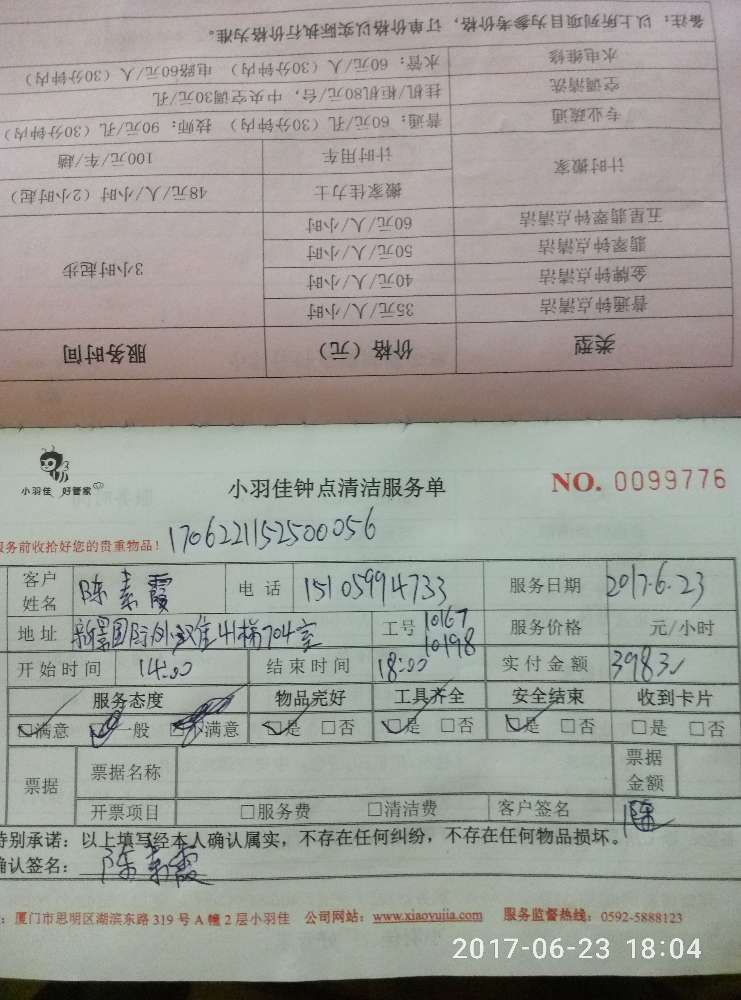 备注：以上所列项目为参考价格，订单价格以实际执行价格为准。
水电维修 水管：60元/人（30分钟内） 电路60元/人（30分钟内）
空调清洗 挂机/柜机80元/台，中央空调30元/孔
专业疏通 普通：60元/孔（30分钟内） 技师：90元/孔（30分钟内）
计时搬家 计时用车 100元/车/趟
搬家佳力士 48元/人/小时（2小时起）
五星翡翠钟点清洁 60元/人/小时
翡翠钟点清洁 50元/人/小时 3小时起步
金牌钟点清洁 40元/人/小时
普通钟点清洁 35元/人/小时
类型 价格（元） 服务时间
小羽佳 好管家
小羽佳钟点清洁服务单
NO. 0099776
务前收拾好您的贵重物品！ 1706221152500056
客户姓名 陈素霞 电话 15105994733 服务日期 2017.6.23
地址 新景国际外滩41梯704室 工号 10167 10198 服务价格 元/小时
开始时间 14:00 结束时间 18:00 实付金额 398元
服务态度 物品完好 工具齐全 安全结束 收到卡片
☑满意 一般 不满意 ☑是 □否 ☑是 □否 ☑是 □否 □是 □否
票据 票据名称 票据金额
开票项目 □服务费 □清洁费 客户签名 陈
特别承诺：以上填写经本人确认属实，不存在任何纠纷，不存在任何物品损坏。
确认签名： 陈素霞
：厦门市思明区湖滨东路319号A幢2层小羽佳 公司网站：www.xiaoyujia.com 服务监督热线：0592-5888123
2017-06-23 18:04